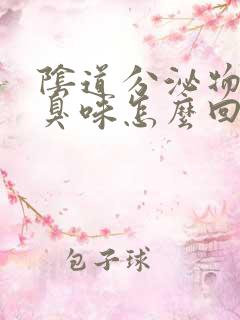 陰道分泌物
臭味怎麼回
包子球